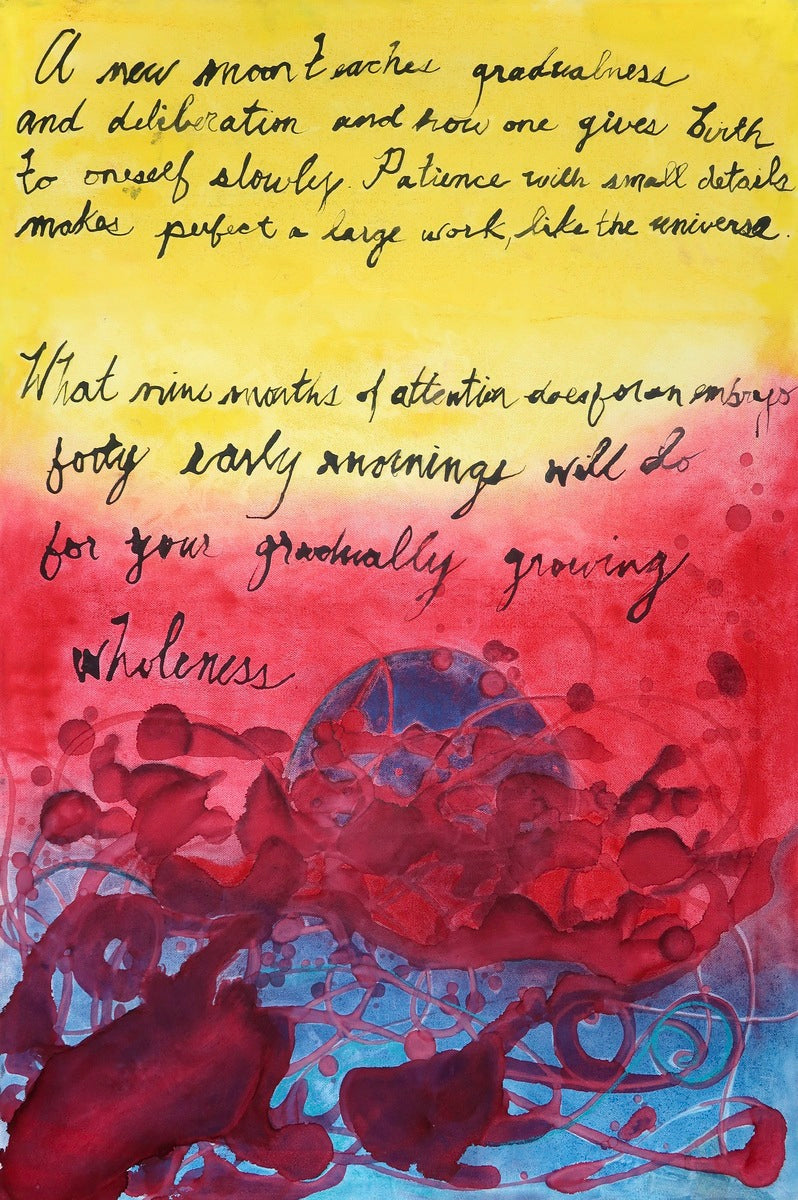 A new moon teaches gradualness
and deliberation and how one gives birth
to oneself slowly. Patience with small details
makes perfect a large work, like the universe.
What nine months of attention does for an embryo
forty early mornings will do
for your gradually growing
wholeness.